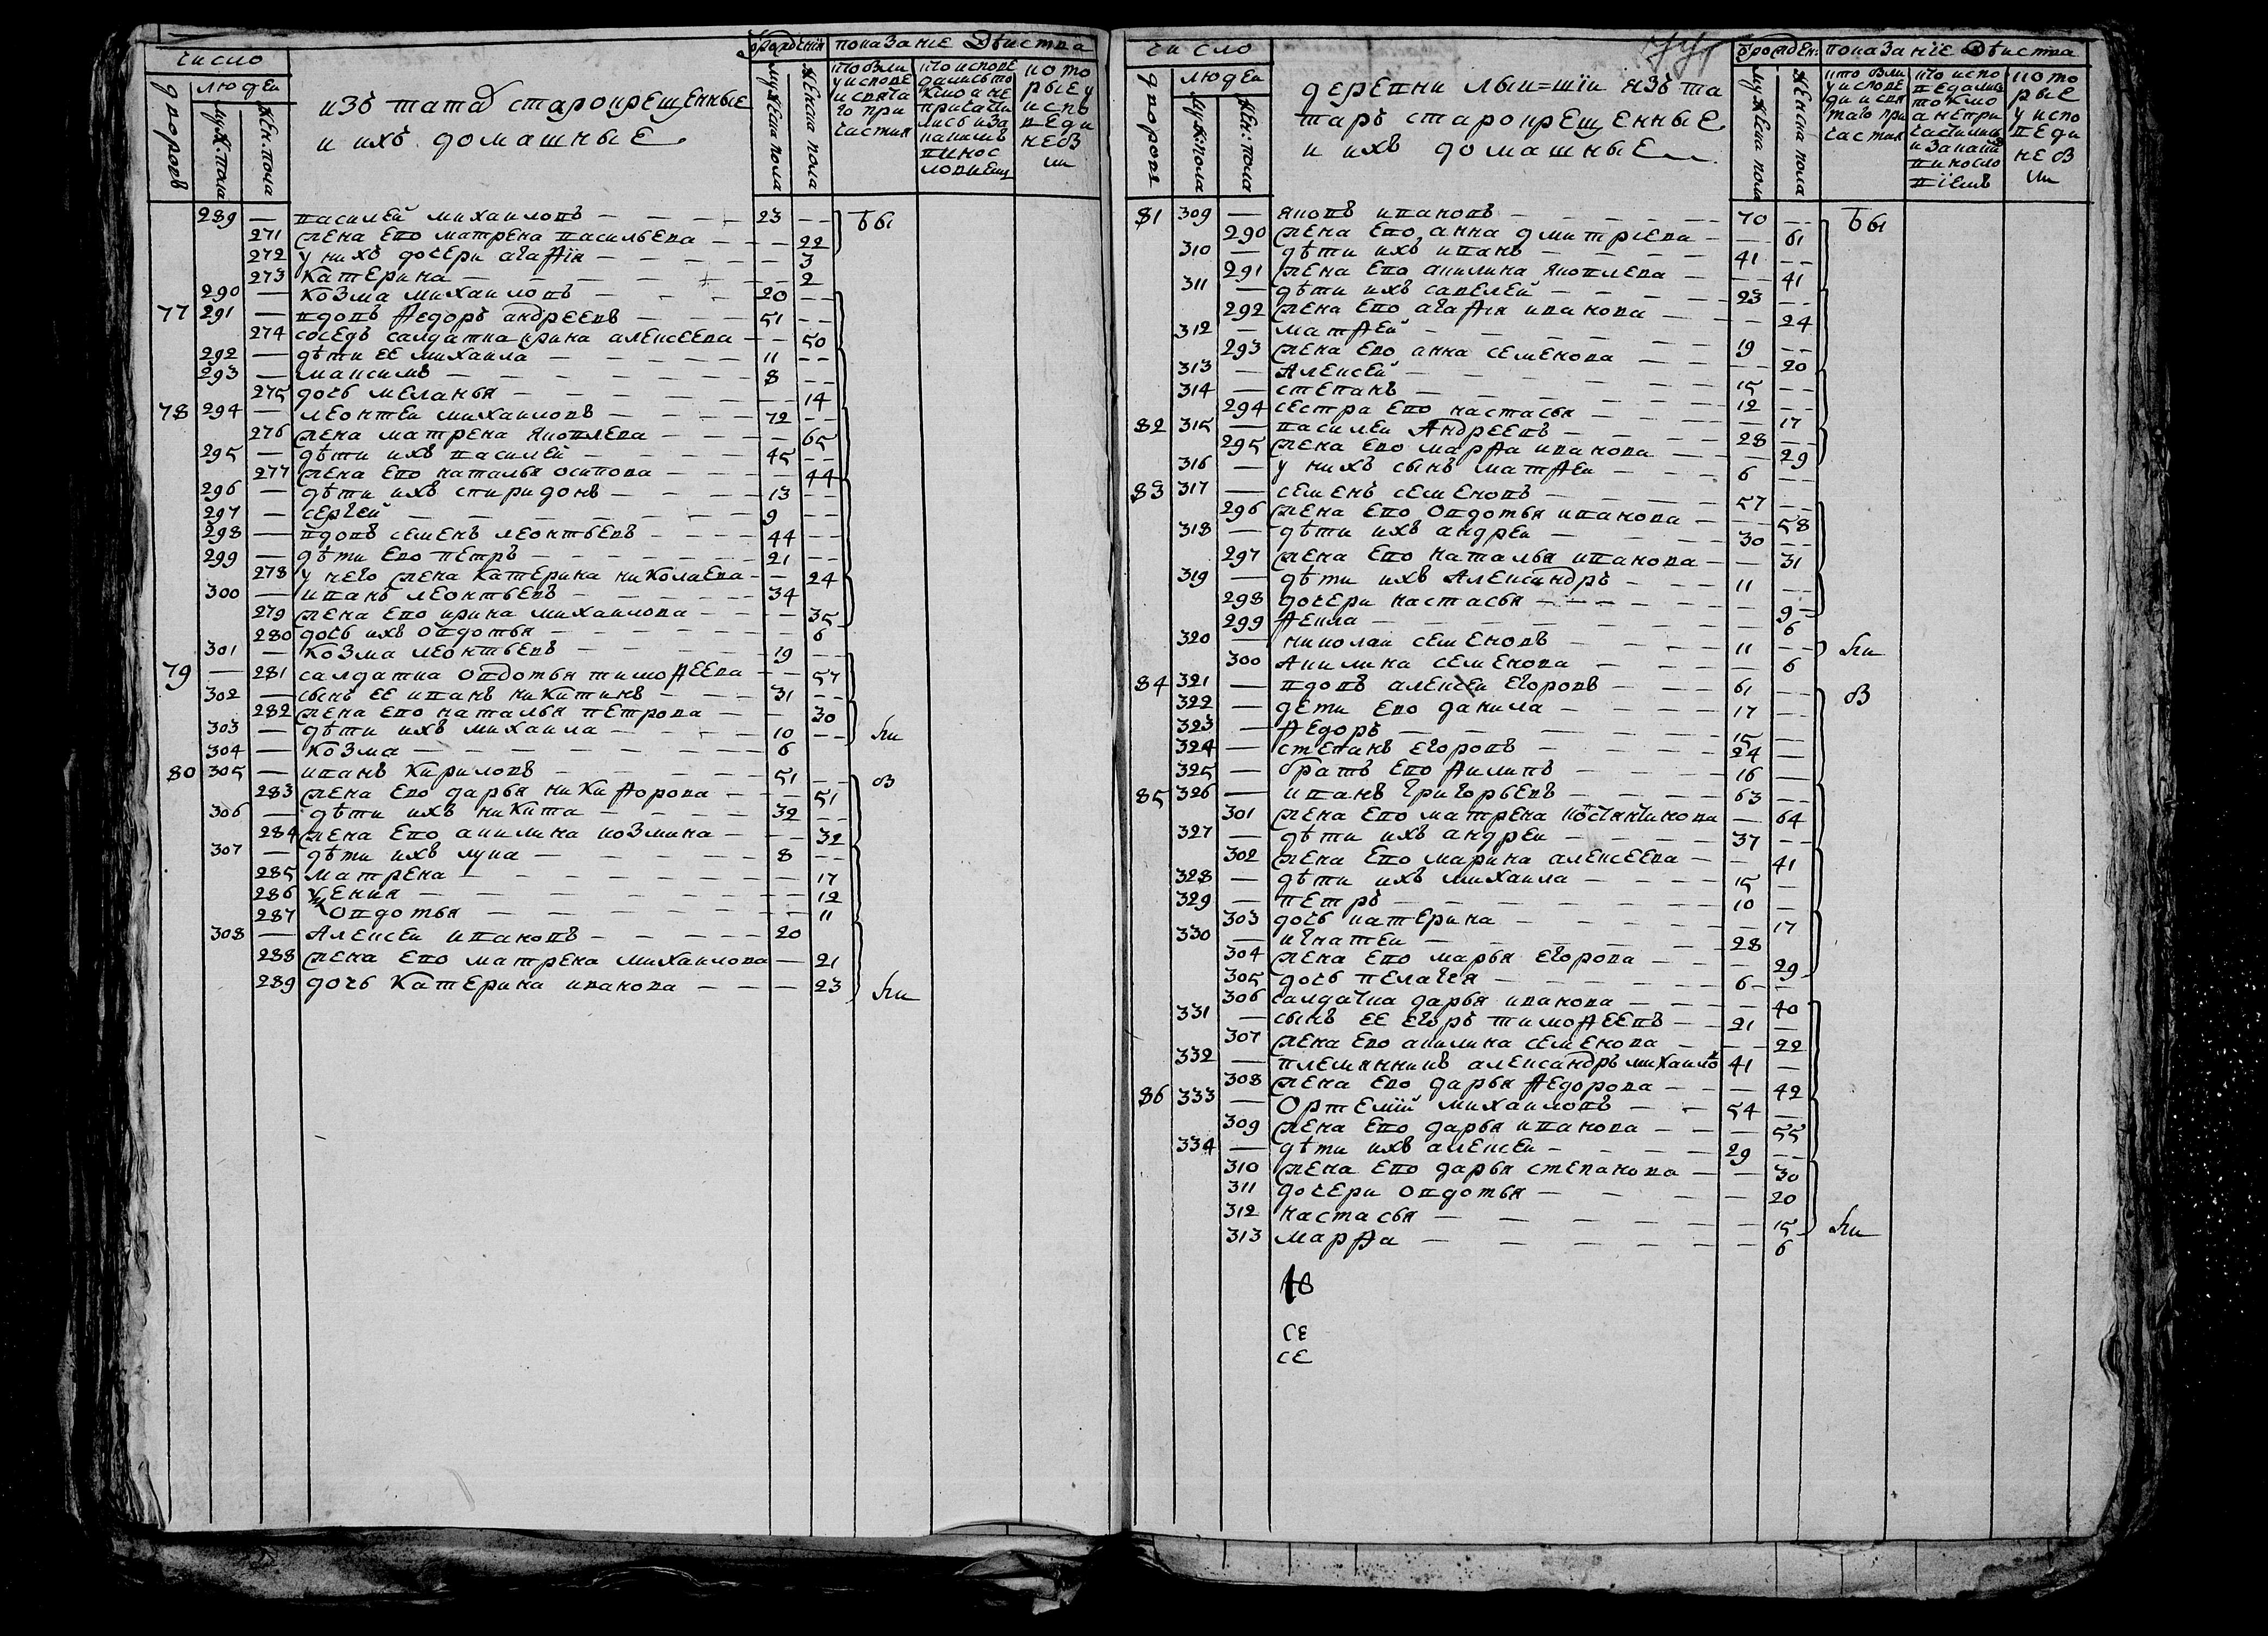 число
людей
дворовъ
муж. пола
жен. пола
изъ татаръ старокрещенные
и ихъ домашные
от рожденія
мужеска пола
женска пола
показаніе действа
кто были у исповеди и святаго причастия
кто исповедались токмо а не причастились и за какимъ винословием
которые у исповеди не были
289 — василей михаиловъ — 23 — бы
271 жена ево матрена васильева — 22
272 у нихъ дочери агафія — 3
273 катерина — 2
290 — козма михаиловъ — 20 —
77 291 — вдовъ федоръ андреевъ — 51 —
274 соседъ салдатка ирина алексеева — 50
292 — дѣти ее михаила — 11 —
293 — максимъ — 8 —
275 дочь меланья — 14
78 294 — леонтеи михаиловъ — 72 —
276 жена матрена яковлева — 65
295 — дѣти ихъ василеи — 45 —
277 жена ево наталья осипова — 44
296 — дѣти ихъ спиридонъ — 13 —
297 — сергей — 9 —
298 — вдовъ семенъ леонтьевъ — 44 —
299 — дѣти ево петръ — 21 —
278 у него жена катерина николаева — 24
300 — иванъ леонтьевъ — 34
279 жена ево ирина михаилова — 35
280 дочь ихъ овдотья — 6
301 — козма леонтьевъ — 19 —
79 — 281 салдатка овдотья тимофеева — 57
302 — сынъ ее иванъ никитинъ — 31 —
282 жена ево наталья петрова — 30
303 — дѣти ихъ михаила — 10 — ли
304 — козма — 6
80 305 — иванъ кириловъ — 51 — б
283 жена ево дарья никифорова — 51
306 — дѣти ихъ никита — 32 —
284 жена ево акилина козмина — 32
307 — дѣти ихъ лука — 8 —
285 матрена — 17
286 ксения — 12
287 овдотья — 11
308 — алексеи ивановъ — 20
288 жена ево матрена михаилова — 21
289 дочь катерина иванова — 23 ли
число
людей
дворовъ
муж: пола
жен: пола
деревни изъ та
таръ старокрещенные
и ихъ домашные
от рожден:
мужеска пола
женска пола
показаніе действа
кто были у исповеди и святаго причастия
кто исповедались токмо а не причастились и за каким винословіемъ
которые у исповеди не были
81 309 — яковъ ивановъ — 70 — бы
290 жена ево анна дмитріева — 61
310 — дѣти ихъ иванъ — 41 —
291 жена ево акилина яковлева — 41
311 — дѣти ихъ савелеи — 23 —
292 жена ево агафія иванова — 24
312 — матфеи — 19 —
293 жена ево анна семенова — 20
313 — алексеи — 15 —
314 — степанъ — 12 —
294 сестра ево настасья — 17
82 315 — василеи андреевъ — 28 —
295 жена ево марфа иванова — 29
316 — у нихъ сынъ матфеи — 6 —
83 317 — семенъ семеновъ — 57 —
296 жена ево овдотья иванова — 58
318 — дѣти ихъ андреи — 30 —
297 жена ево наталья иванова — 31
319 — дѣти ихъ александръ — 11 —
298 дочери настасья — 9
299 фекла — 6
320 — николаи семеновъ — 11 — ли
300 акилина семенова — 6
84 321 — вдовъ алексеи егоровъ — 61 — б
322 — дети ево данила — 17 —
323 — федоръ — 15 —
324 — степанъ егоровъ — 24 —
325 — братъ ево филипъ — 16 —
85 326 — иванъ григорьевъ — 63 —
301 жена ево матрена костянтинова — 64
327 — дѣти ихъ андреи — 37 —
302 жена ево марина алексеева — 41
328 — дѣти ихъ михаила — 15 —
329 — петръ — 10 —
303 дочь катерина — 17
330 — игнатеи — 28
304 жена ево марья егорова — 29
305 дочь пелагея — 6 —
306 салдатка дарья иванова — 40
331 — сынъ ее егоръ тимофеевъ — 21 —
307 жена ево акилина семенова — 22
332 — племянникъ александръ михаило 41 —
308 жена ево дарья федорова — 42
86 333 — ортемій михаиловъ — 54 —
309 жена ево дарья иванова — 55
334 — дѣти ихъ алексеи — 29 —
310 жена ево дарья степанова — 30
311 дочери овдотья — 20
312 настасья — 15 ли
313 марфа — 6
се
се